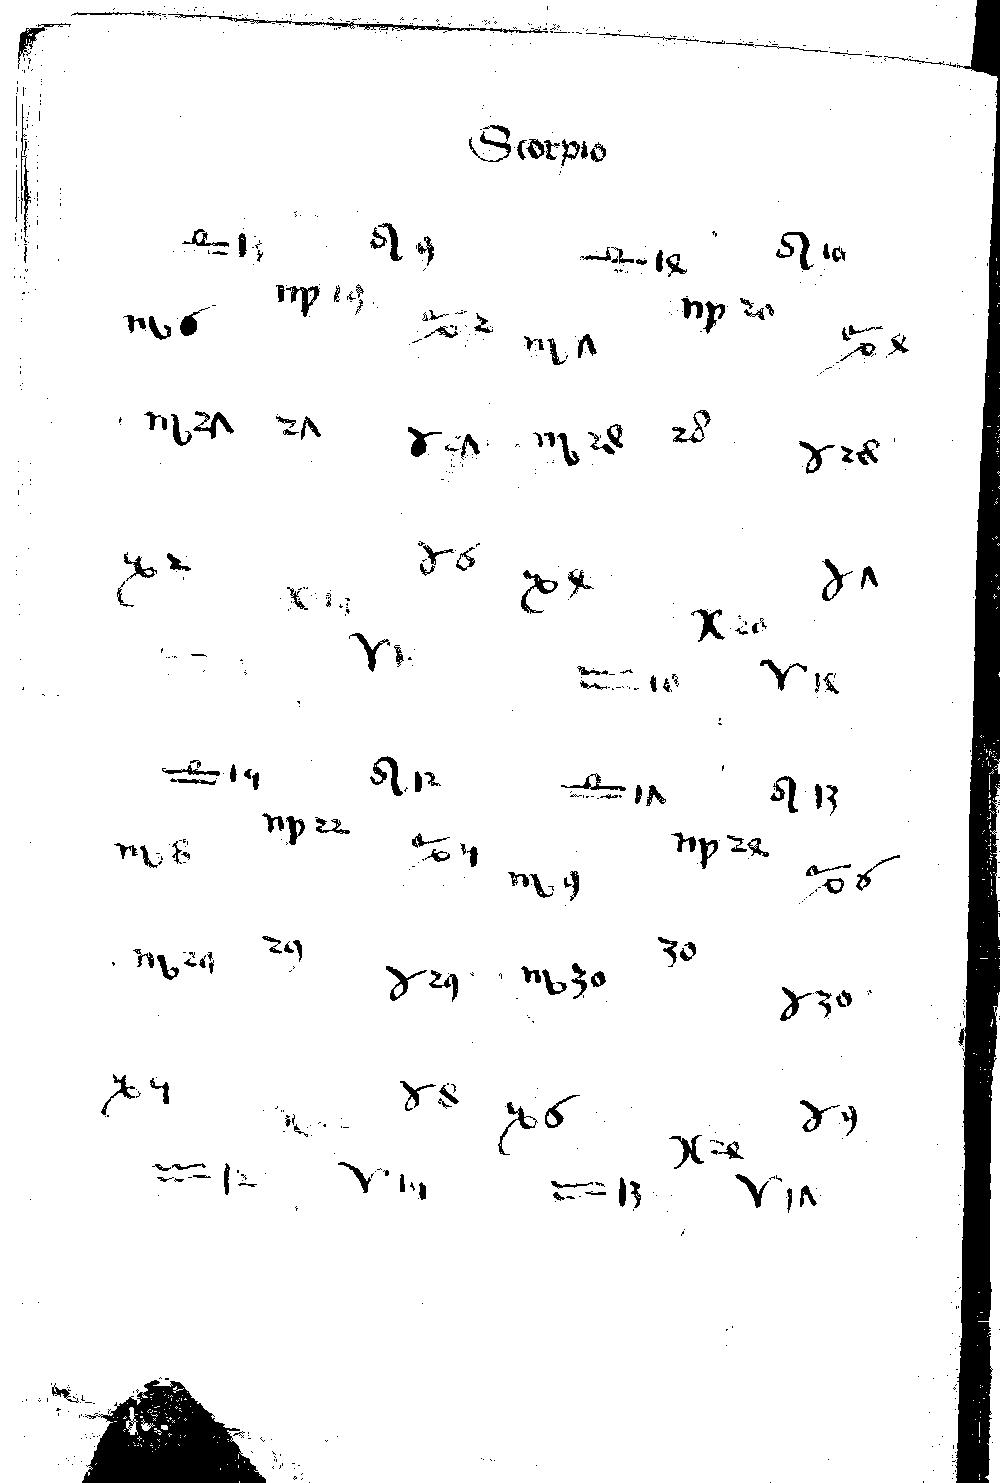 Scorpio
♎ 13 ♌ 9 ♎ 14 ♌ 10
♏ 6 ♍ 19 ♋ 2 ♏ 7 ♍ 20 ♋ 4
♏ 27 27 ♉ 27 ♏ 28 28 ♉ 28
♑ 2 ♓ 19 ♉ 6 ♑ 4 ♓ 20 ♉ 7
♈ ♒ 10 ♈ 14
♎ 15 ♌ 12 ♎ 17 ♌ 13
♏ 8 ♍ 22 ♋ 5 ♏ 9 ♍ 24 ♋ 6
♏ 29 29 ♉ 29 ♏ 30 30 ♉ 30
♑ 5 ♉ 8 ♑ 6 ♓ 24 ♉ 9
♒ 12 ♈ 15 ♒ 13 ♈ 17